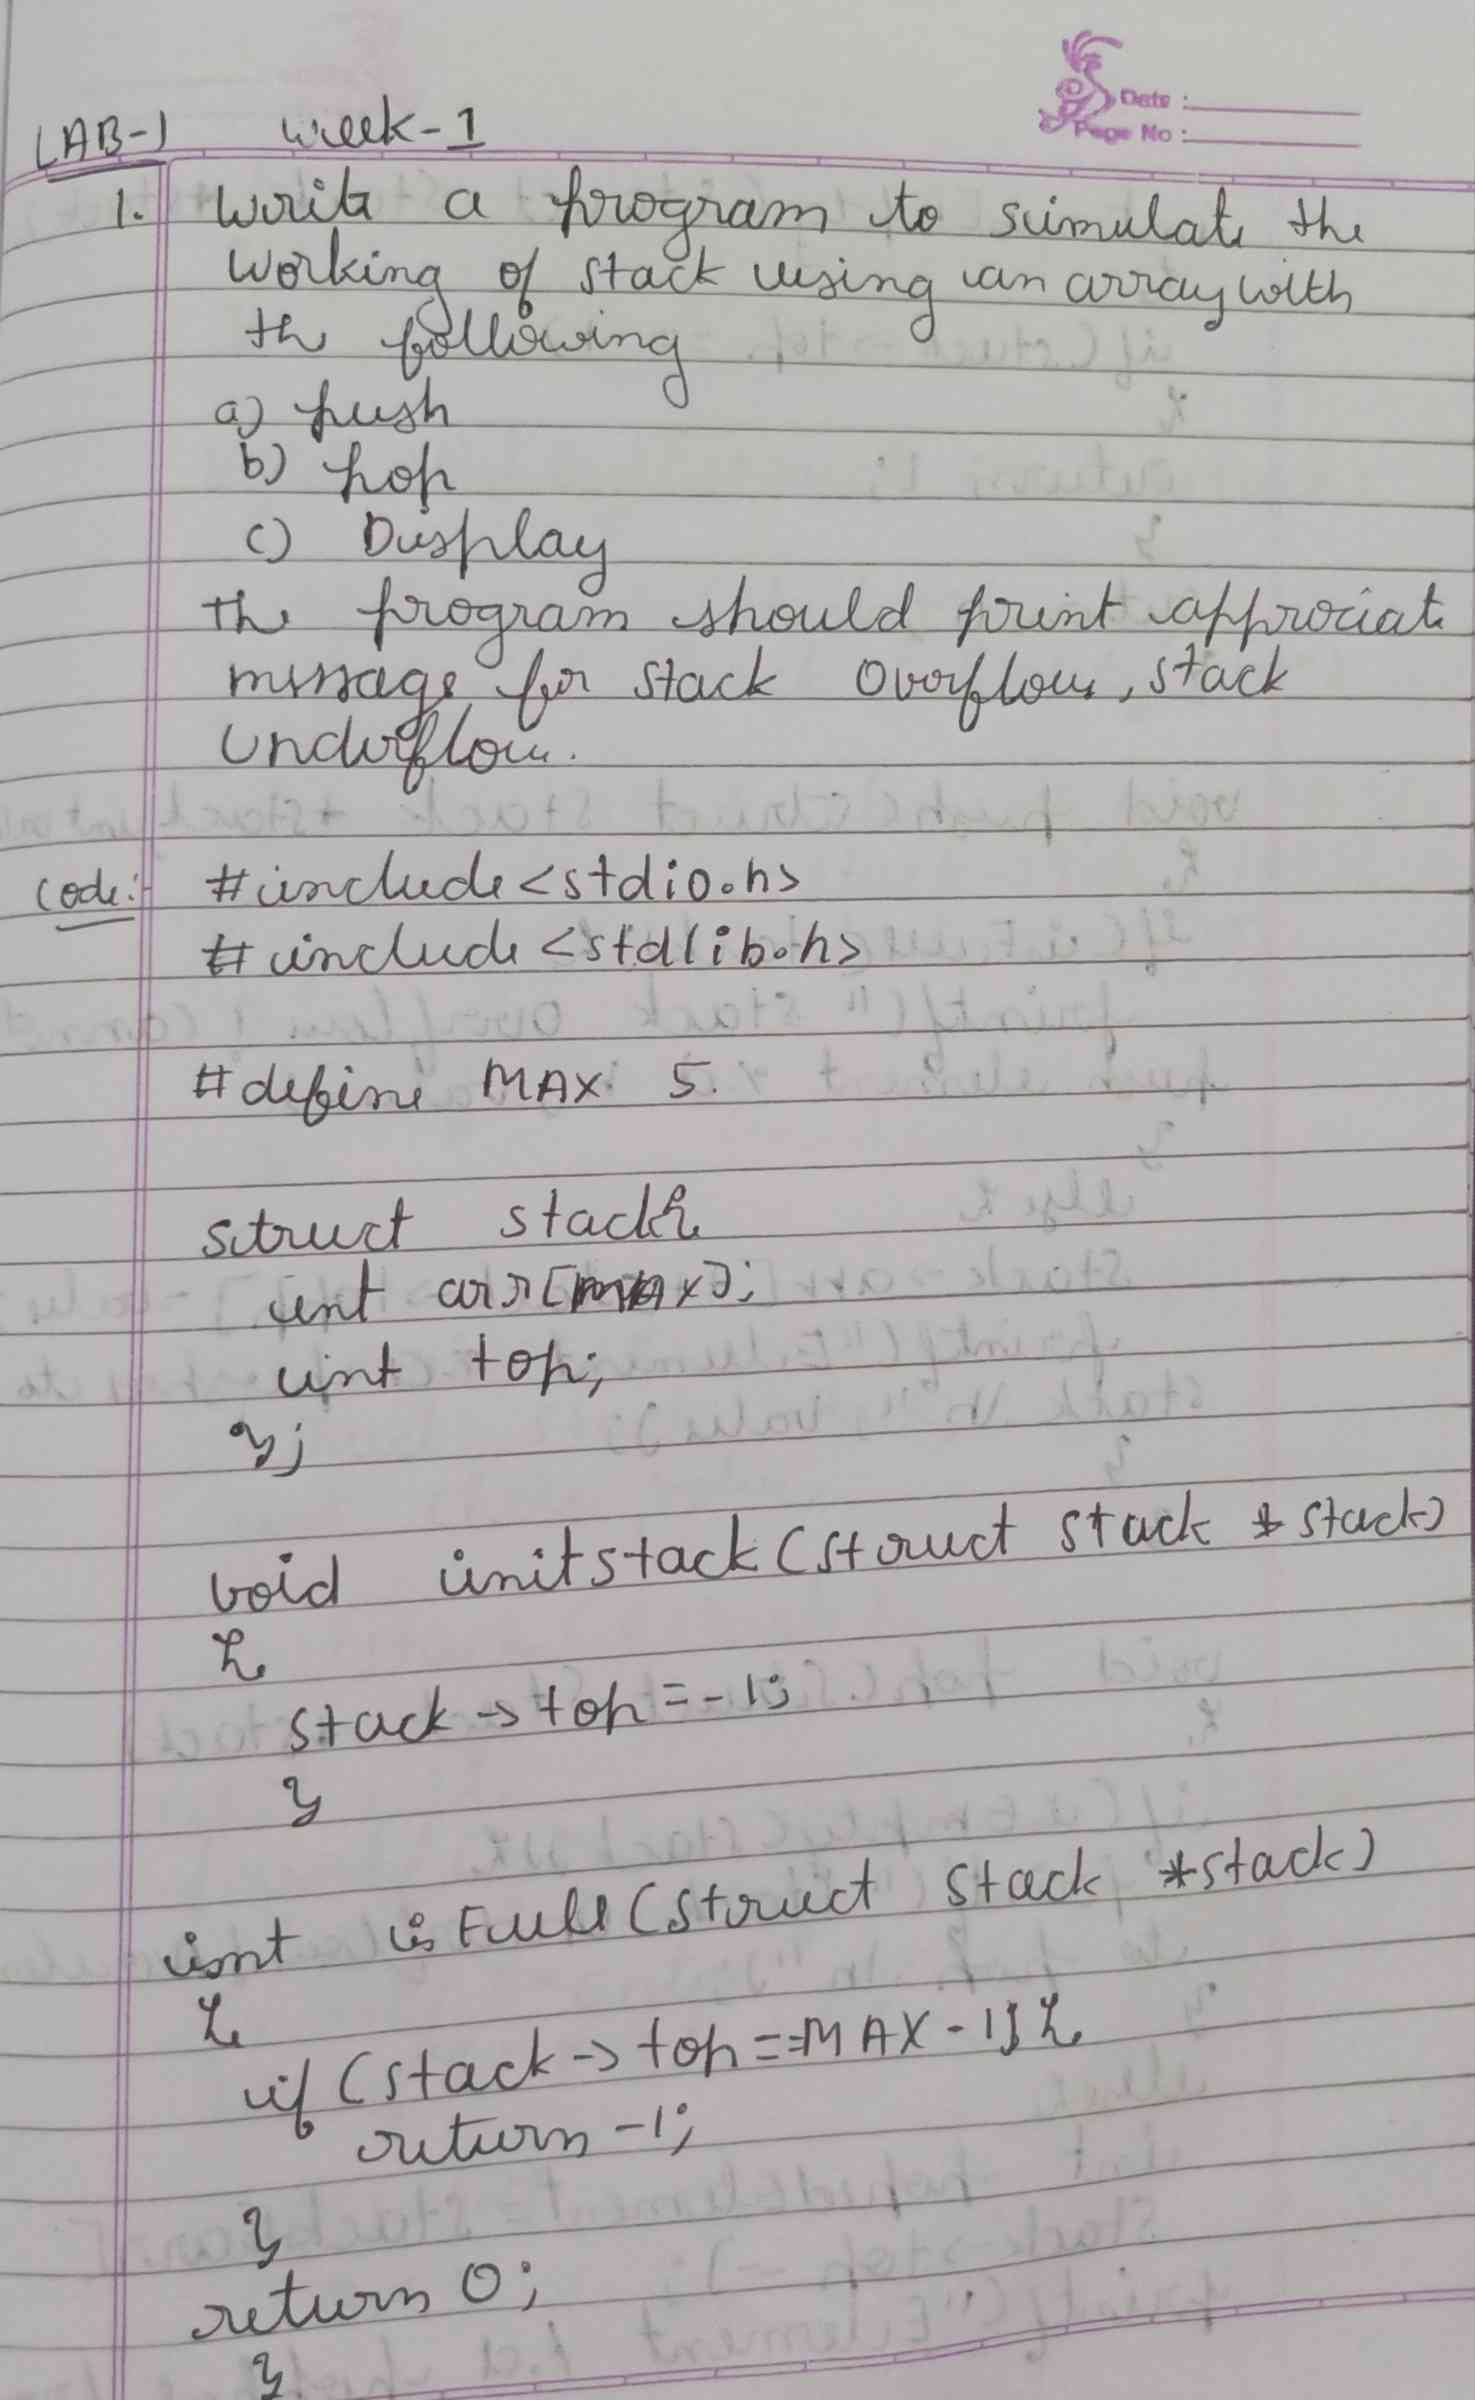 Date :
Page No :
LAB-1 week-1
1. Write a program to simulate the
working of stack using an array with
the following
a) push
b) pop
c) Display
the program should print approciate
message for stack Overflow, stack
Underflow.
Code:- #include <stdio.h>
#include <stdlib.h>
#define MAX 5.
struct stack{
int arr[MAX];
int top;
};
void initstack (struct stack *stack)
{
stack -> top = -1;
}
int isFull (struct stack *stack)
{
if (stack -> top == MAX - 1) {
return -1;
}
return 0;
}